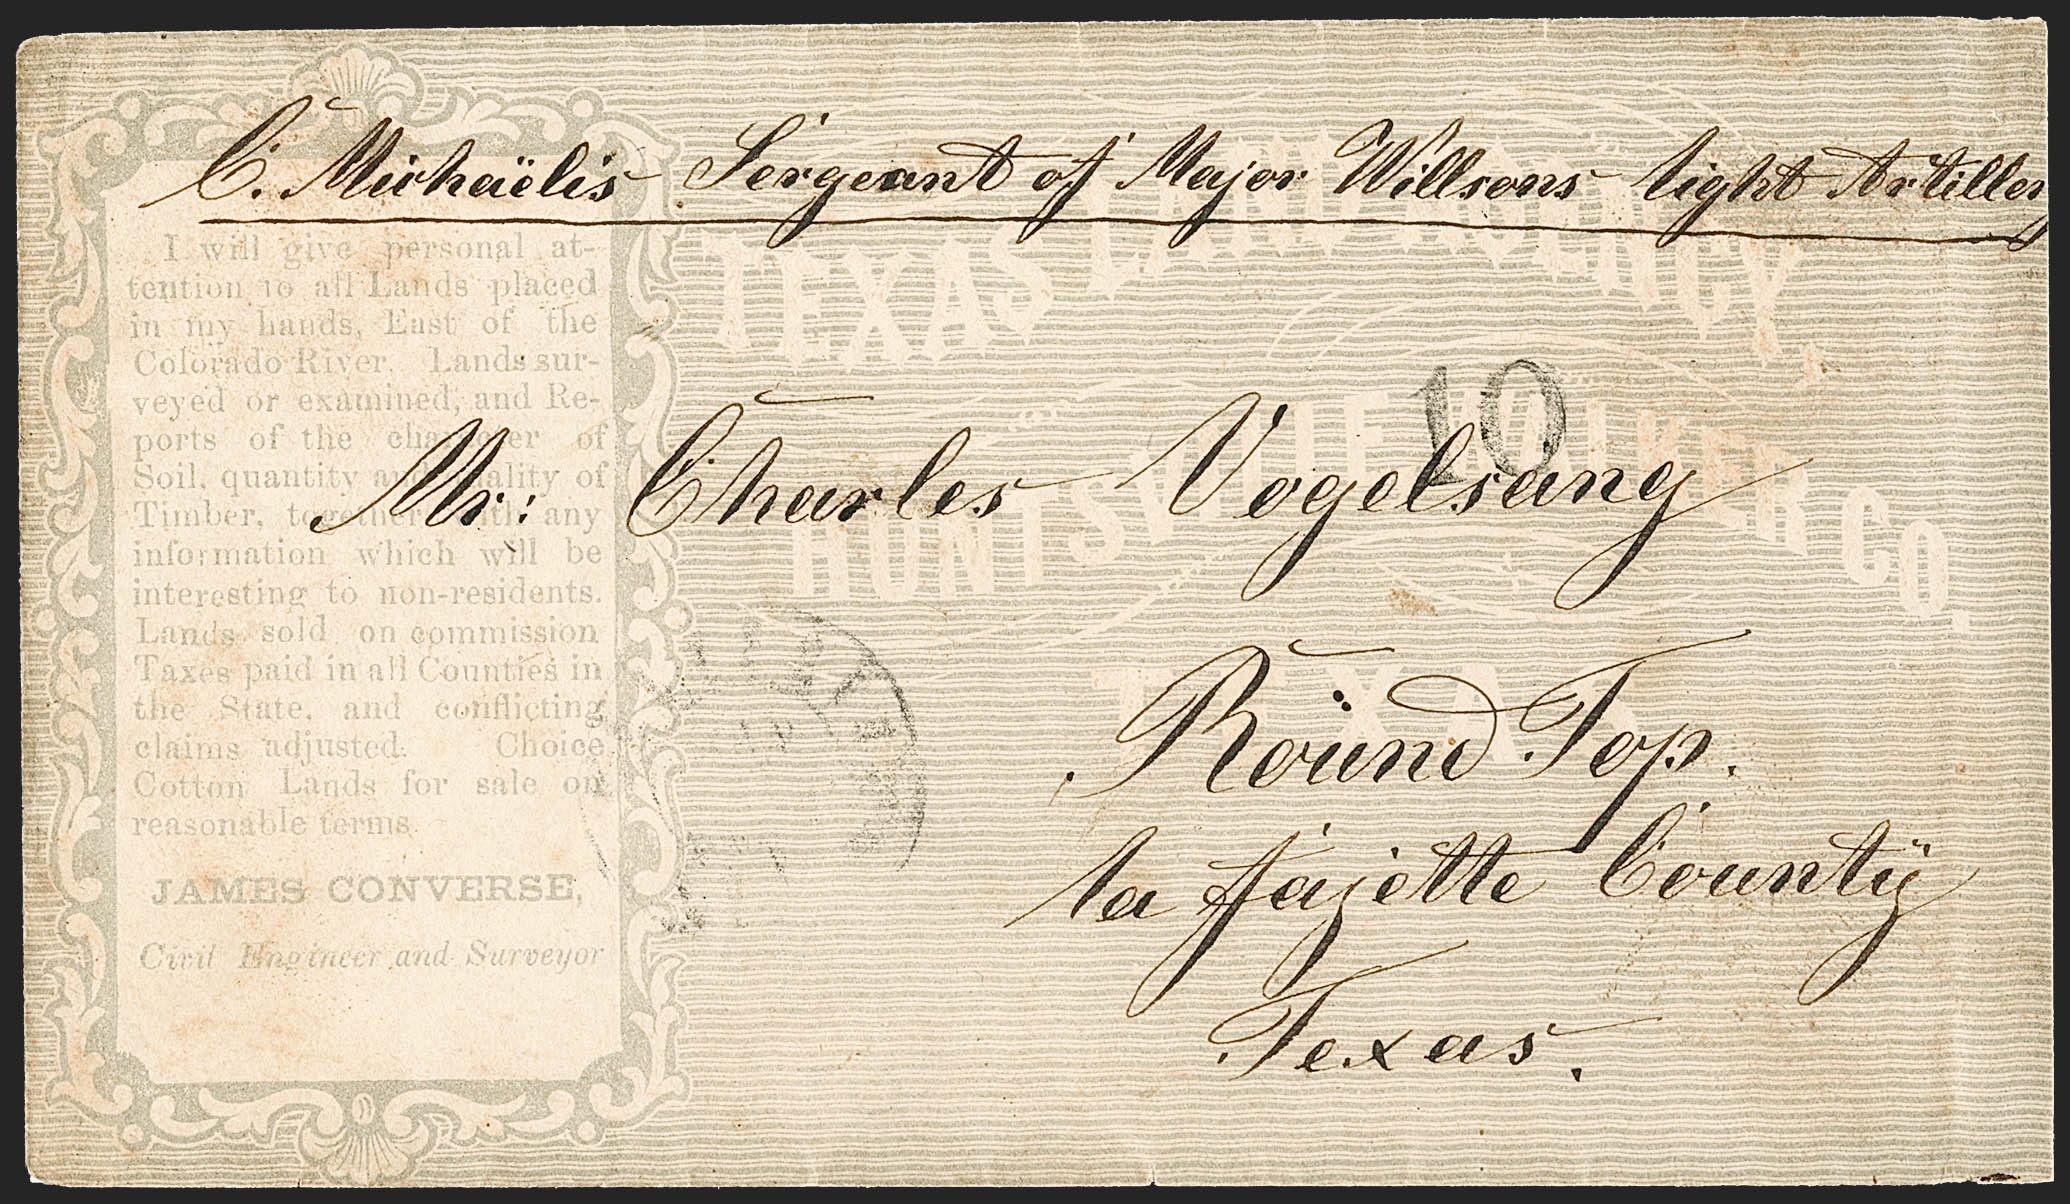 C. Michaëlis Sergeant of Major Willsons light Artillery
I will give personal at-
tention to all Lands placed
in my hands, East of the
Colorado River. Lands sur-
veyed or examined, and Re-
ports of the character of
Soil, quantity and quality of
Timber, together with any
information which will be
interesting to non-residents.
Lands sold on commission
Taxes paid in all Counties in
the State, and conflicting
claims adjusted. Choice
Cotton Lands for sale on
reasonable terms.
JAMES CONVERSE,
Civil Engineer and Surveyor
TEXAS LAND AGENCY,
HUNTSVILLE WALKER CO.
TEXAS
10
Mr: Charles Vogelsang
Roünd Top.
la fajette Countÿ
Texas.